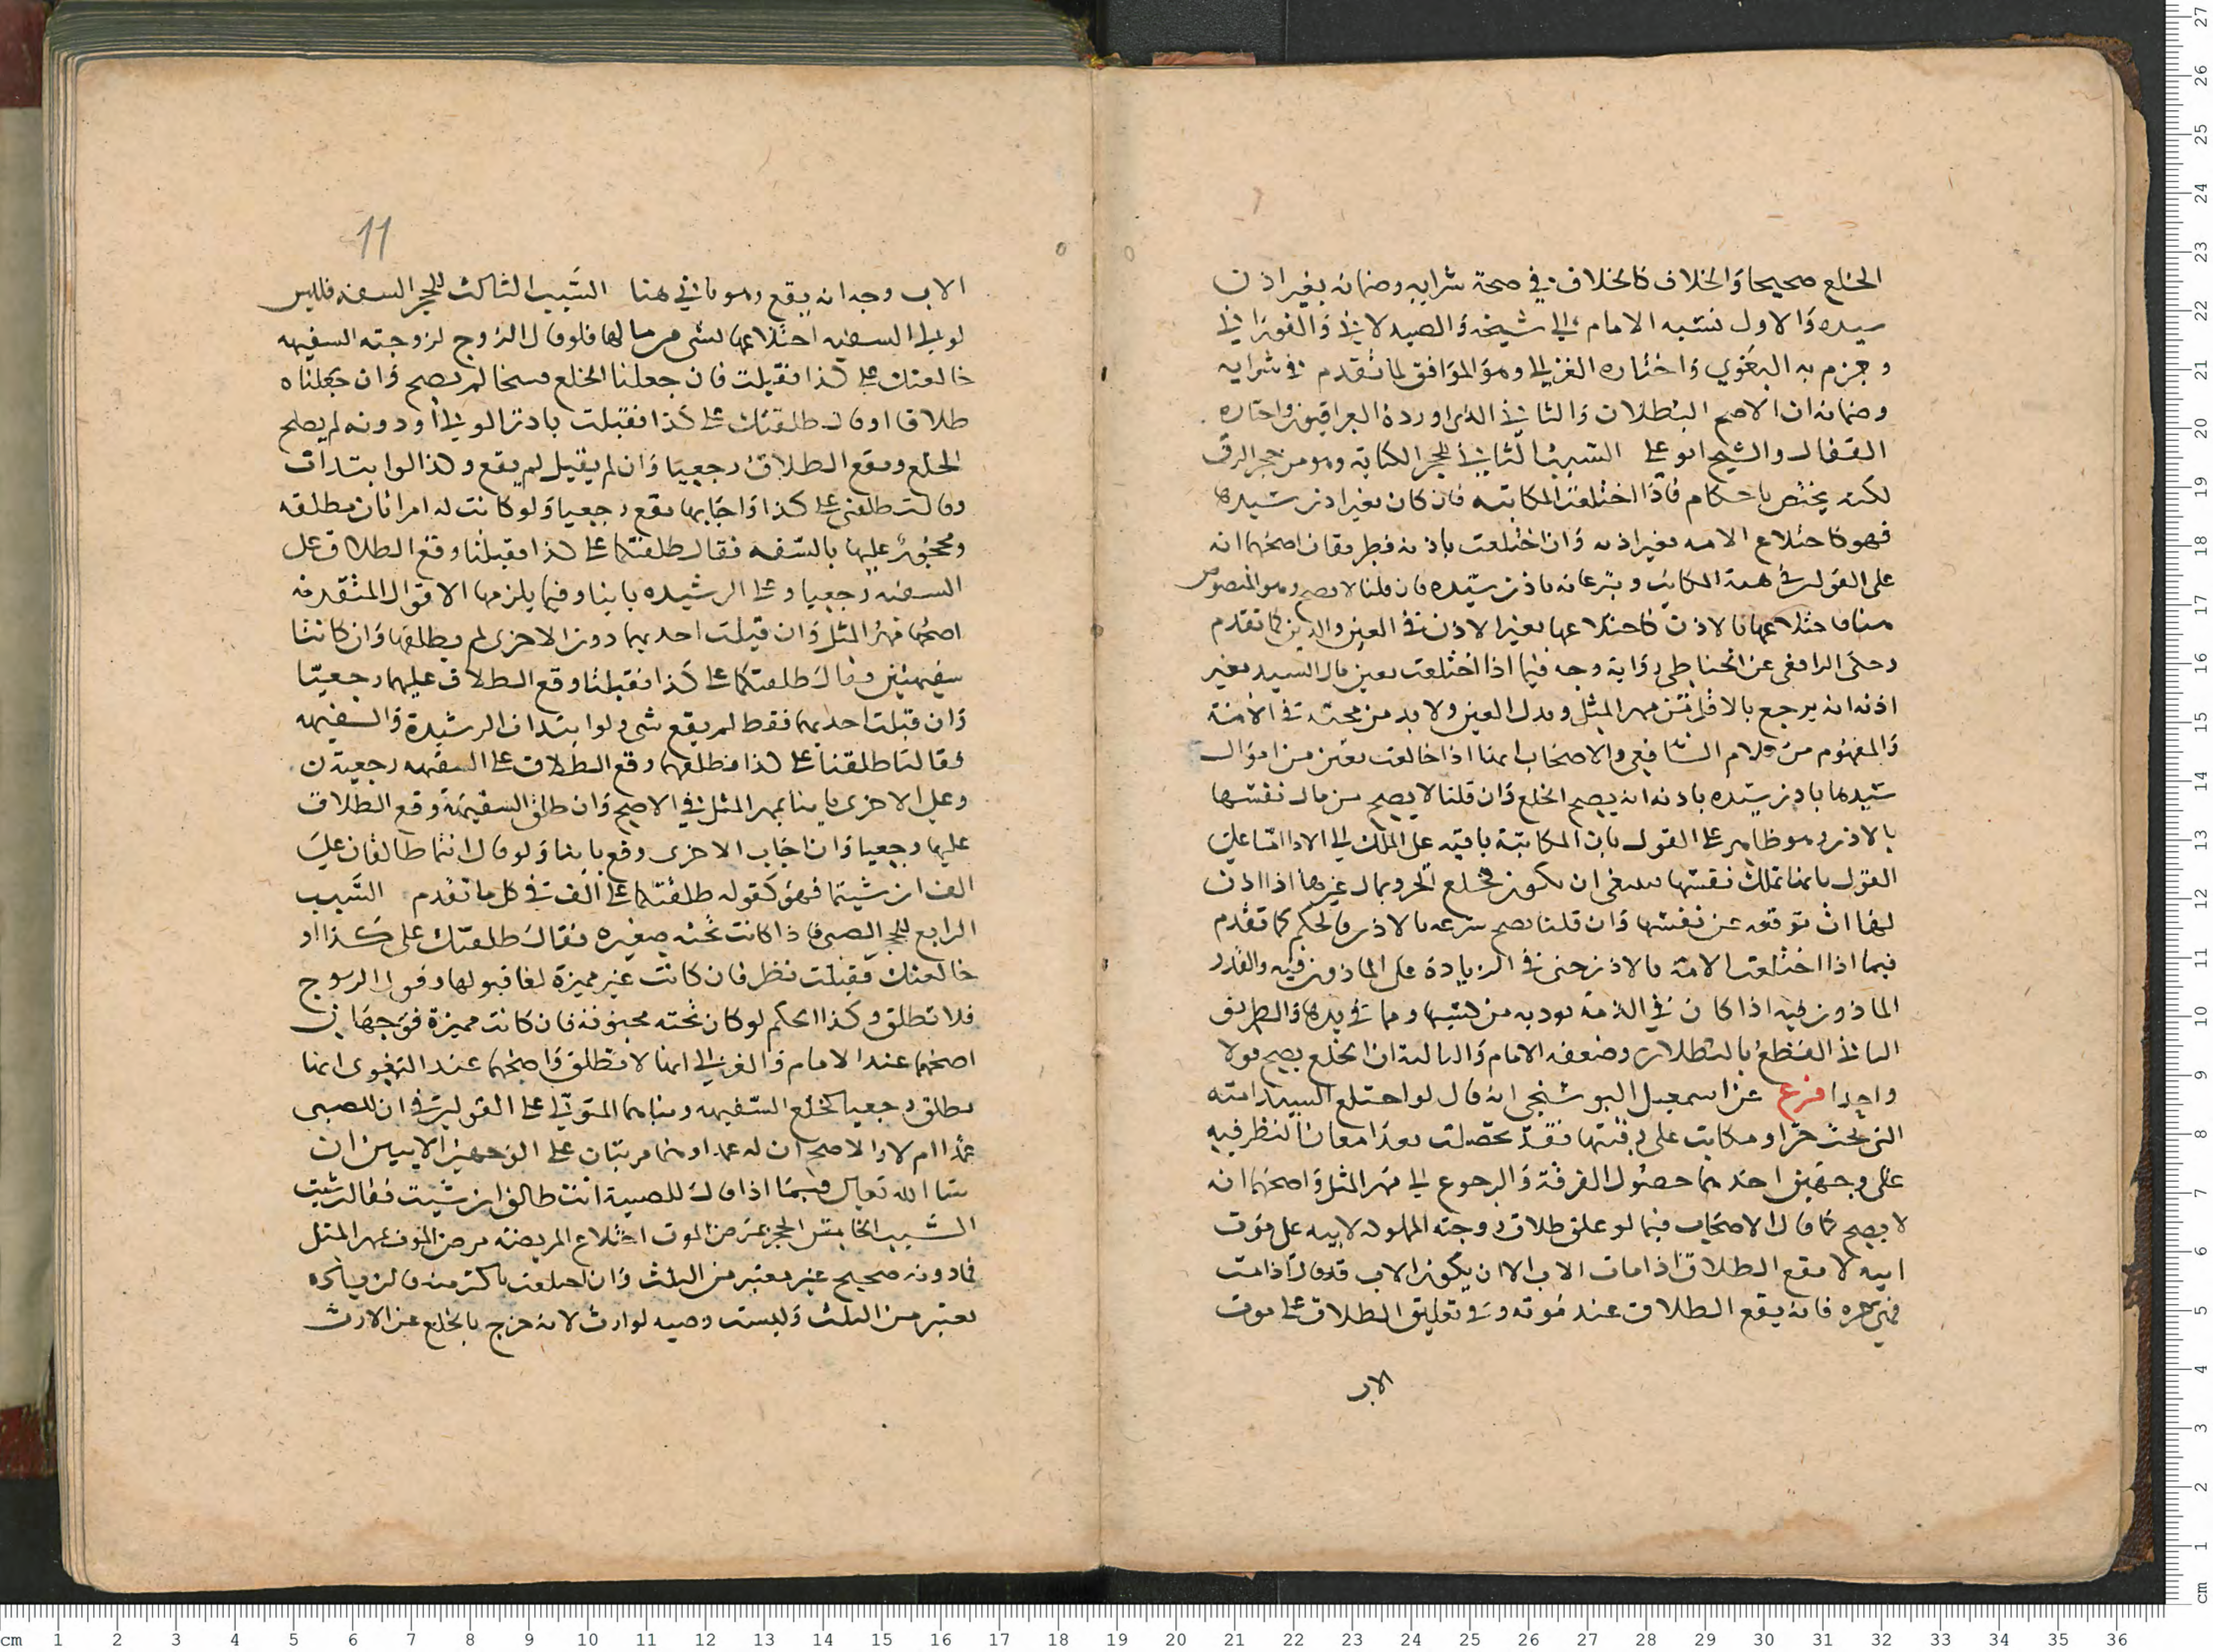 الخلع صحيحا والخلاف كالخلاف في صحة شرايه وضمانه بغير اذن
سيده والاول نسبه الامام الى شيخه والصيدلاني والفوراني
وجزم به البغوي واختاره الغزالي وهو الموافق لما تقدم في شرايه
وضمانه ان الاصح البطلان والثاني الذي اورده العراقيون واختاره
القفال والشيخ ابو علي السبب الثاني للحجر الكتابة وهو من حجر الرق
لكنه يختص باحكام فاذا اختلعت المكاتبه فان كان بغير اذن سيدها
فهو كاختلاع الامه بغير اذنه وان اختلعت باذنه فطريقان اصحهما انه
على القولين في هبة المكاتب وتبرعاته باذن سيده فان قلنا لا يصح وهو المنصوص
هنا فاختلاعها بالاذن كاختلاعها بغير الاذن في العين والدين كما تقدم
وحكى الرافعي عن الحناطي رواية وجه فيما اذا اختلعت بعين مال السيد بغير
اذنه انه يرجع بالاقل من مهر المثل وبدل العين ولا بد من مجيئه في الامة
والمفهوم من كلام الشافعي والاصحاب انها اذا خالعت بعين من اموال
سيدها باذن سيده باذنه انه يصح الخلع وان قلنا لا يصح من مال نفسها
بالاذن وهو ظاهر على القول بان المكاتبة باقيه على الملك الى الادا اما على
القول بانها تملك نفسها فينبغي ان يكون كخلع الحر بمال غيرها اذا اذن
لها ان توقعه عن نفسها وان قلنا يصح تبرعه بالاذن فالحكم كما تقدم
فيما اذا اختلعت الامة بالاذن حتى في الزيادة على الماذون فيه والقدر
الماذون فيه اذا كان في الذمة توديه من كسبها وما في يدها والطريق
الثاني القطع بالبطلان وضعفه الامام والثالثة ان الخلع يصح قولا
واحدا فرع عن اسمعيل البوشنجي انه قال لو اختلع السيد امته
التي تحت حر او مكاتب على رقبتها فقد تحصلت بعد امعان النظر فيه
على وجهين احدهما حصول الفرقة والرجوع الى مهر المثل واصحهما انه
لا يصح كما قال الاصحاب فيما لو علق طلاق زوجته المملوكه لابيه على موت
ابيه لا يقع الطلاق اذا مات الاب الا ان يكون الاب قد قال اذا مت
فهي حره فانه يقع الطلاق عند موته وفي تعليق الطلاق على موت
الاب
11
الاب وجه انه يقع وهو ياتي هنا السبب الثالث للحجر السفه فليس
لولي السفيه اختلاعها بشي من مالها فلو قال الزوج لزوجته السفيهه
خالعتك على كذا فقبلت فان جعلنا الخلع فسخا لم يصح وان جعلناه
طلاقا او قال طلقتك على كذا فقبلت باذن الولي او دونه لم يصح
الخلع ويقع الطلاق رجعيا وان لم يقبل لم يقع وكذا لو ابتدات
وقالت طلقني على كذا واجابها يقع رجعيا ولو كانت له امراتان مطلقه
ومحجور عليها بالسفه فقال طلقتكما على كذا فقبلتا وقع الطلاق على
السفيهه رجعيا وعلى الرشيده باينا وفيما يلزمها الاقوال المتقدمه
اصحها مهر المثل وان قبلت احديهما دون الاخرى لم يطلقها وان كانتا
سفيهتين وقال طلقتكما على كذا فقبلتا وقع الطلاق عليهما رجعيا
وان قبلت احديهما فقط لم يقع شي ولو ابتدات الرشيدة والسفيهه
فقالتا طلقنا على كذا فطلقهما وقع الطلاق على السفيهه رجعية
وعلى الاخرى باينا بمهر المثل في الاصح وان طلق السفيهة وقع الطلاق
عليها رجعيا وان اجاب الاخرى وقع باينا ولو قال انتما طالقان على
الف ان شيتما فهو كقوله طلقتكما على الف في كل ما تقدم السبب
الرابع للحجر الصبي فاذا كانت تحته صغيره فقال طلقتك على كذا او
خالعتك فقبلت نظر فان كانت غير مميزة لغا قبولها وقول الزوج
فلا تطلق وكذا الحكم لو كان تحته مجنونه فان كانت مميزة فوجهان
اصحهما عند الامام والغزالي انها لا تطلق واصحهما عند البغوي انها
تطلق رجعيا كخلع السفيهه وبناهما المتولي على القولين في ان للصبي
عمدا ام لا والاصح ان له عمدا وهما مرتبان على الوجهين الاتيين ان
شا الله تعالى فيما اذا قال للصبية انت طالق ان شيت فقالت شيت
السبب الخامس الحجر بمرض الموت اختلاع المريضه مرض الموت بمهر المثل
فما دونه صحيح غير معتبر من الثلث وان اختلعت باكثر منه فالزيادة
تعتبر من الثلث وليست وصيه لوارث لانه خرج بالخلع عن الارث